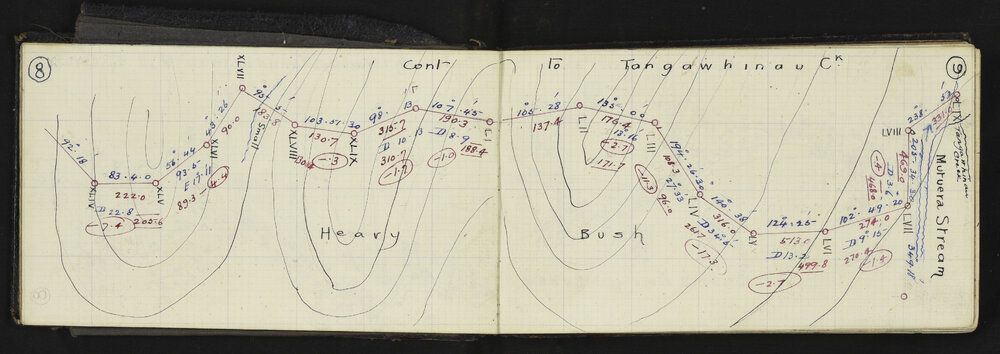 8
Cont
To
Tangawhinau Ck
9
92·18
XLIV
83·4·0
222.0
D 22·8
205·6
-7·4
XLV
56·44
93·5
E 17·11
89·3
-4·4
XLVI
43·26
90·0
XLVII
95
Small
XLVIII
103·51·30
130·7
-·3
XLIX
98°
315·7
D 10
310·7
-1·7
L
107·45
190·3
D 8·9
188·4
-1·0
LI
105·28
137·4
LII
135
175·4
171·7
-2·7
LIII
194·26·30
108·3
27·33
96·0
-11·3
LIV
140·38
316·0
-17·3
LV
124·25
513·0
D 13·2
499·8
-2·7
LVI
102·49·20
274·0
D 9·15
270·4
-1·4
LVII
349·18
D 3·6
468·0
469·0
LVIII
238
LIX
Tangawhinau
Creek
Mutuera Stream
Heavy
Bush